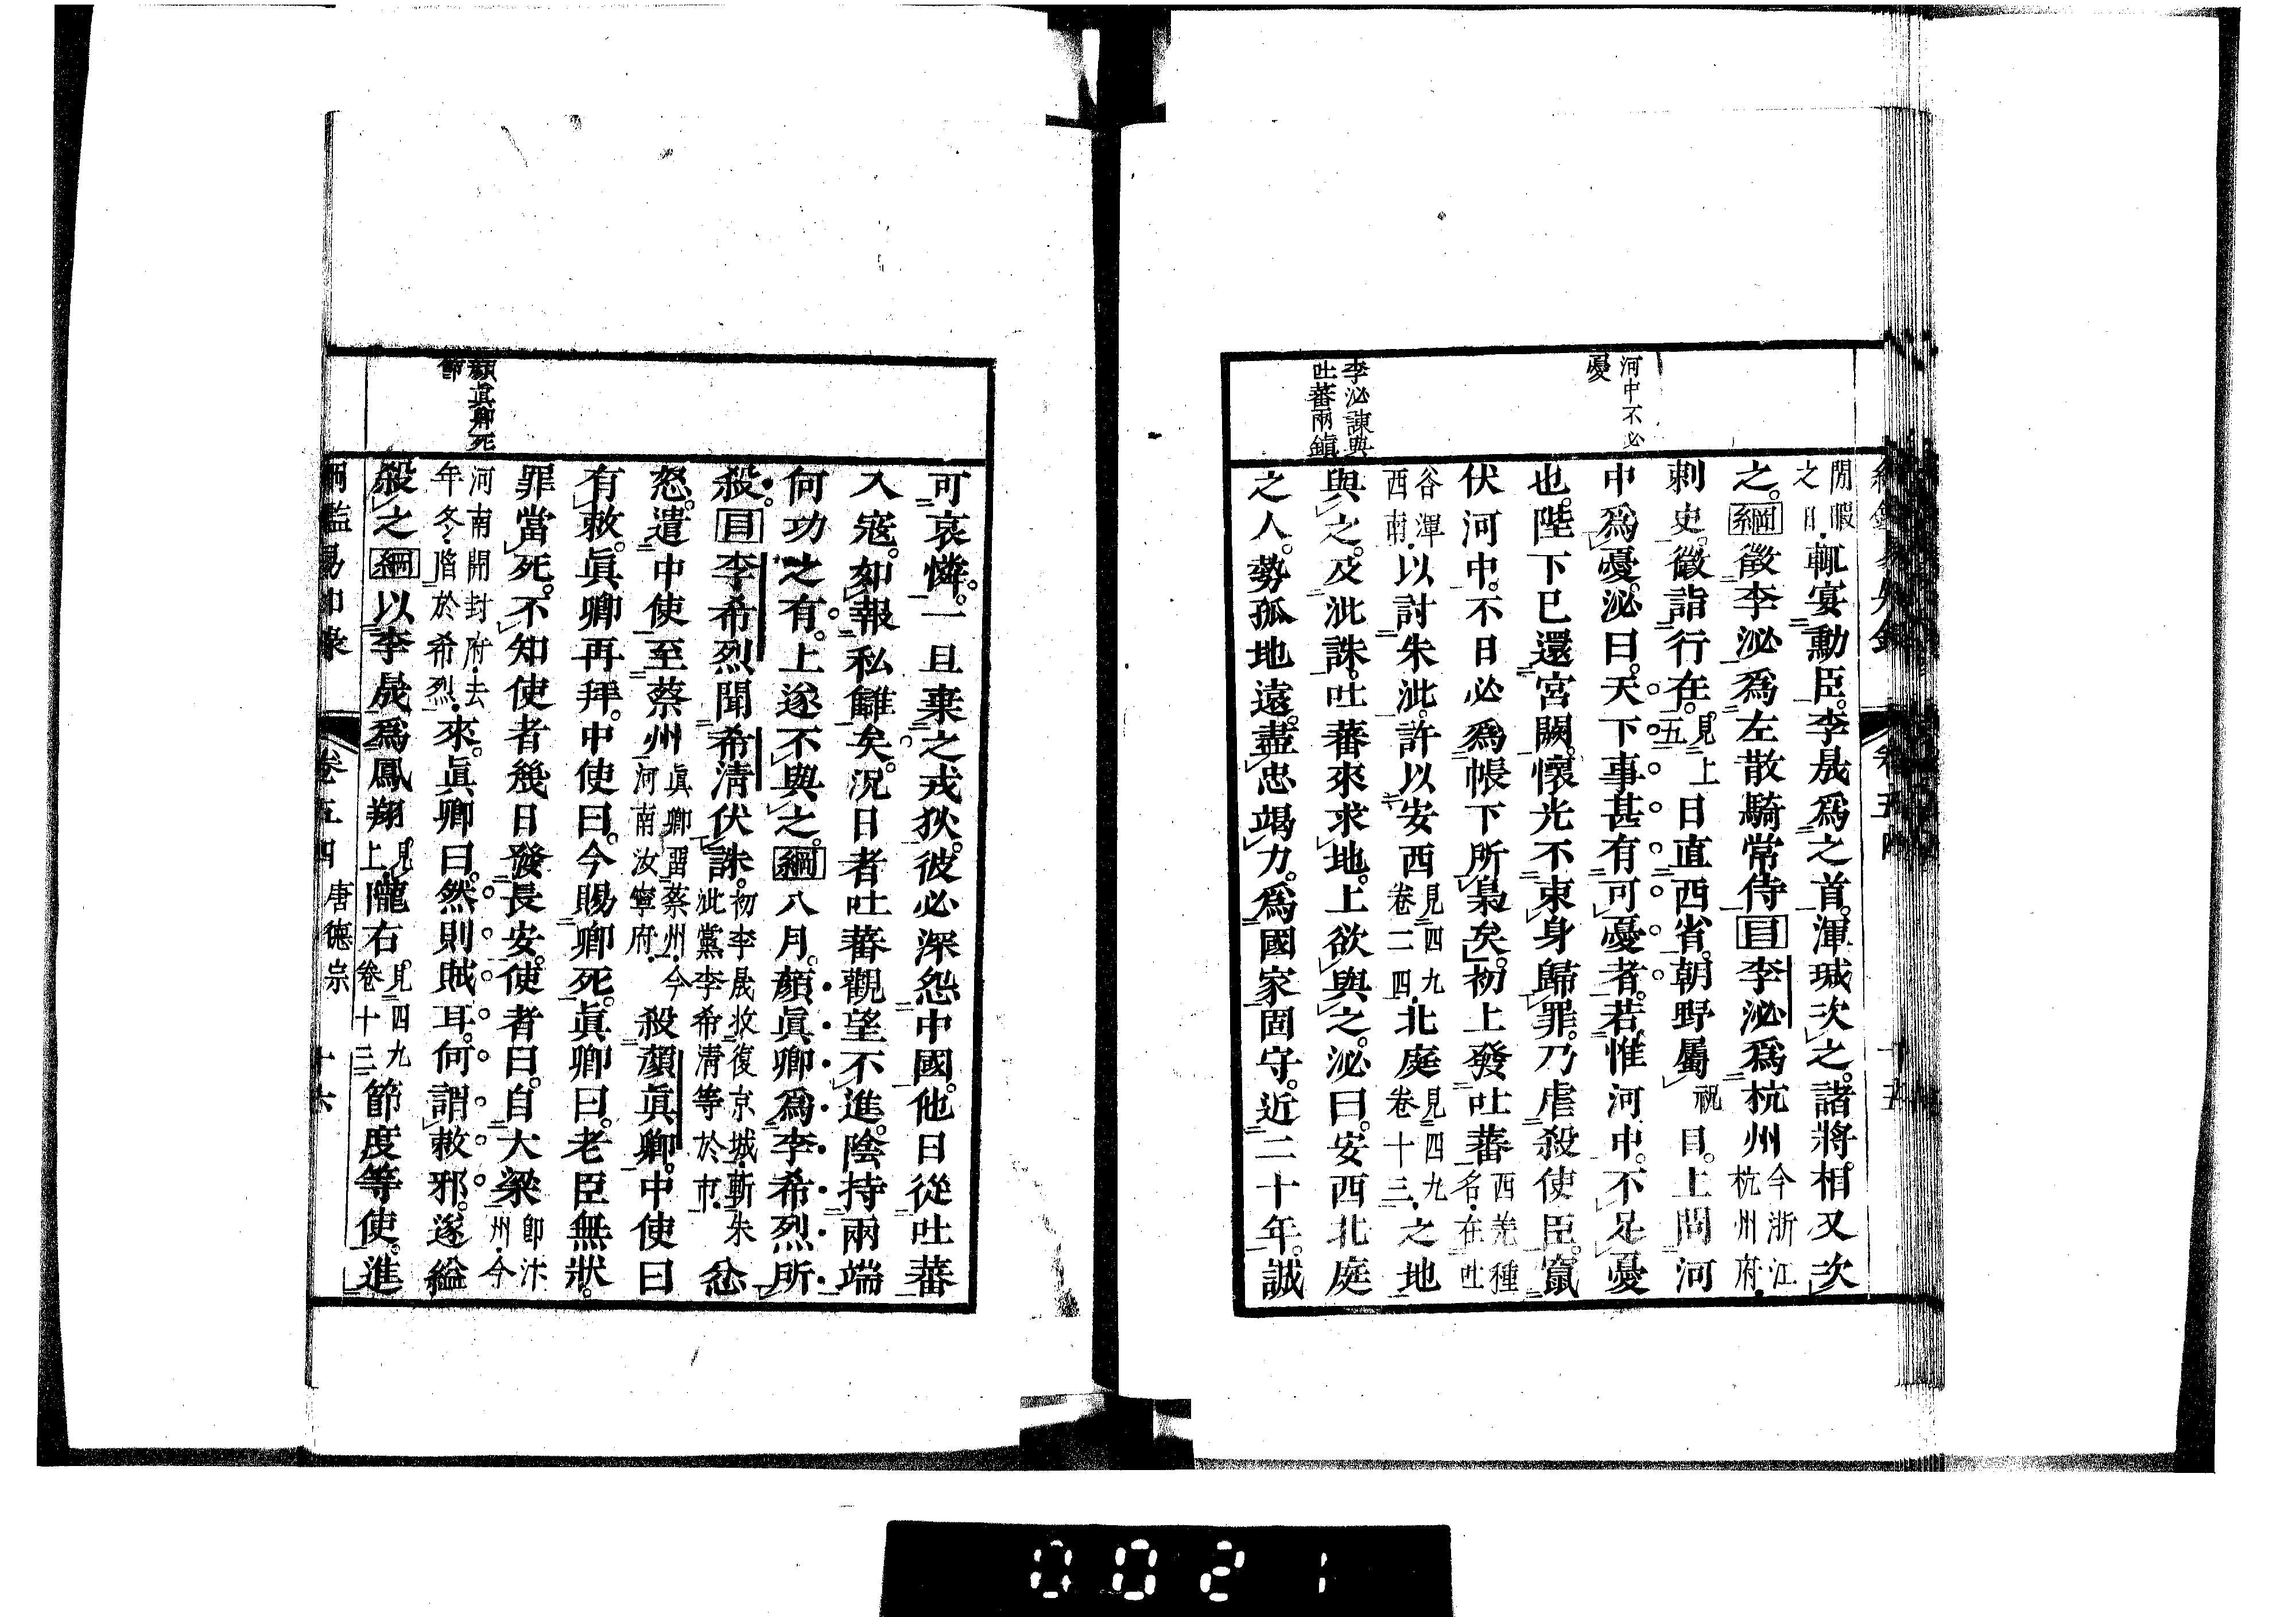 河中不必
憂
李泌諫與
吐蕃兩鎮
閒暇之日輒宴勳臣。李晟爲之首。渾瑊次之。諸將相又次
之。綱徵李泌爲左散騎常侍目李泌爲杭州今浙江杭州府
刺史。徵詣行在。見上五日直西省。朝野屬祝目。上問河
中爲憂。泌曰。天下事甚有可憂者。若惟河中。不足憂
也。陛下已還宮闕。懷光不束身歸罪。乃虐殺使臣。竄
伏河中。不日必爲帳下所梟矣。初上發吐蕃西羌種名在吐
谷渾西南以討朱泚。許以安西見四九卷二四北庭見四九卷十三之地
與之。及泚誅。吐蕃來求地。上欲與之。泌曰。安西北庭
之人。勢孤地遠。盡忠竭力。爲國家固守。近二十年。誠
顏眞卿死
節
可哀憐。一旦棄之戎狄。彼必深怨中國。他日從吐蕃
入寇。如報私讎矣。況日者吐蕃觀望不進。陰持兩端
何功之有。上遂不與之。綱八月。顏眞卿爲李希烈所
殺。目李希烈聞希淸伏誅。初李晟收復京城斬朱泚黨李希淸等於市忿
怒。遣中使至蔡州眞卿留蔡州今河南汝寧府殺顏眞卿。中使曰
有敕。眞卿再拜。中使曰。今賜卿死。眞卿曰。老臣無狀。
罪當死。不知使者幾日發長安。使者曰。自大梁卽汴州今
河南開封府去年冬陷於希烈來。眞卿曰。然則賊耳。何謂敕邪。遂縊
殺之綱以李晟爲鳳翔見上隴右見四九卷十三節度等使。進
綱鑑易知錄 卷五四 唐德宗 十六